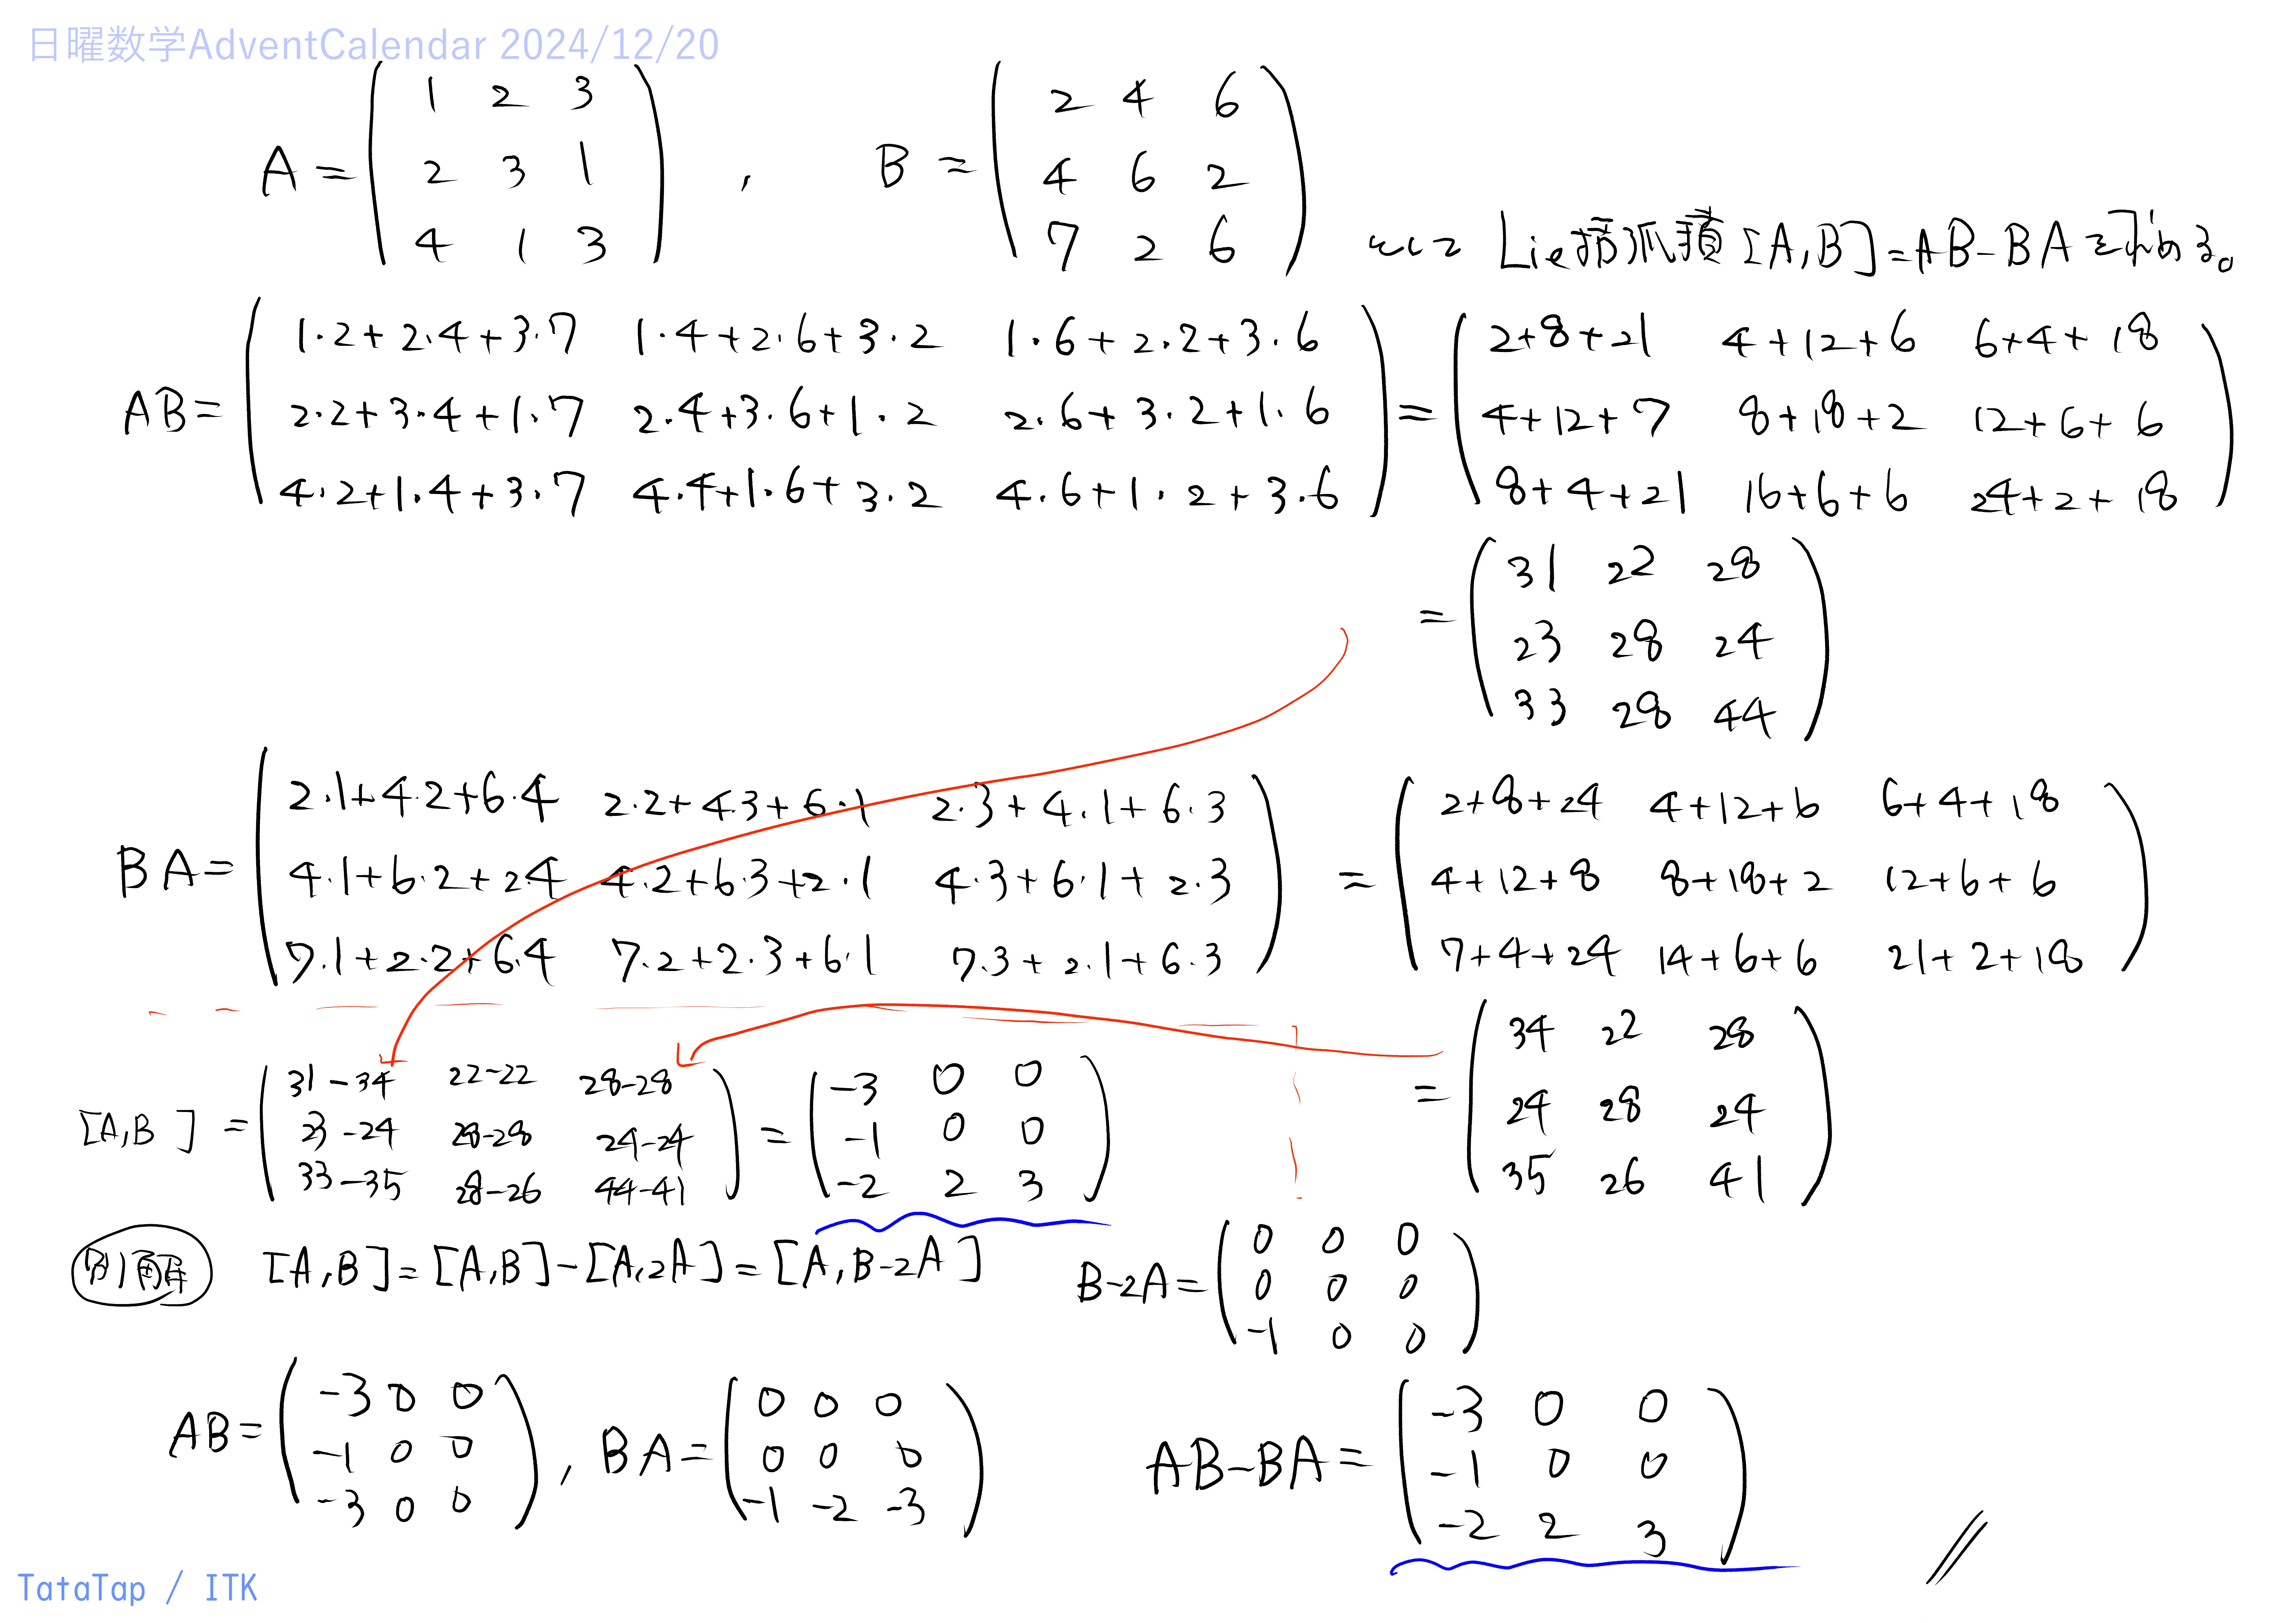 日曜数学AdventCalendar 2024/12/20
A = ( 1 2 3 ; 2 3 1 ; 4 1 3 ) , B = ( 2 4 6 ; 4 6 2 ; 7 2 6 ) について Lie括弧積 [A,B]=AB-BA を求める。
AB = ( 1·2+2·4+3·7 1·4+2·6+3·2 1·6+2·2+3·6 ; 2·2+3·4+1·7 2·4+3·6+1·2 2·6+3·2+1·6 ; 4·2+1·4+3·7 4·4+1·6+3·2 4·6+1·2+3·6 ) = ( 2+8+21 4+12+6 6+4+18 ; 4+12+7 8+18+2 12+6+6 ; 8+4+21 16+6+6 24+2+18 )
= ( 31 22 28 ; 23 28 24 ; 33 28 44 )
BA = ( 2·1+4·2+6·4 2·2+4·3+6·1 2·3+4·1+6·3 ; 4·1+6·2+2·4 4·2+6·3+2·1 4·3+6·1+2·3 ; 7·1+2·2+6·4 7·2+2·3+6·1 7·3+2·1+6·3 ) = ( 2+8+24 4+12+6 6+4+18 ; 4+12+8 8+18+2 12+6+6 ; 7+4+24 14+6+6 21+2+18 )
= ( 34 22 28 ; 24 28 24 ; 35 26 41 )
[A,B] = ( 31-34 22-22 28-28 ; 23-24 28-28 24-24 ; 33-35 28-26 44-41 ) = ( -3 0 0 ; -1 0 0 ; -2 2 3 )
別解 [A,B]=[A,B]-[A,2A]=[A,B-2A] B-2A= ( 0 0 0 ; 0 0 0 ; -1 0 0 )
AB= ( -3 0 0 ; -1 0 0 ; -3 0 0 ) , BA= ( 0 0 0 ; 0 0 0 ; -1 -2 -3 ) AB-BA= ( -3 0 0 ; -1 0 0 ; -2 2 3 ) //
TataTap / ITK